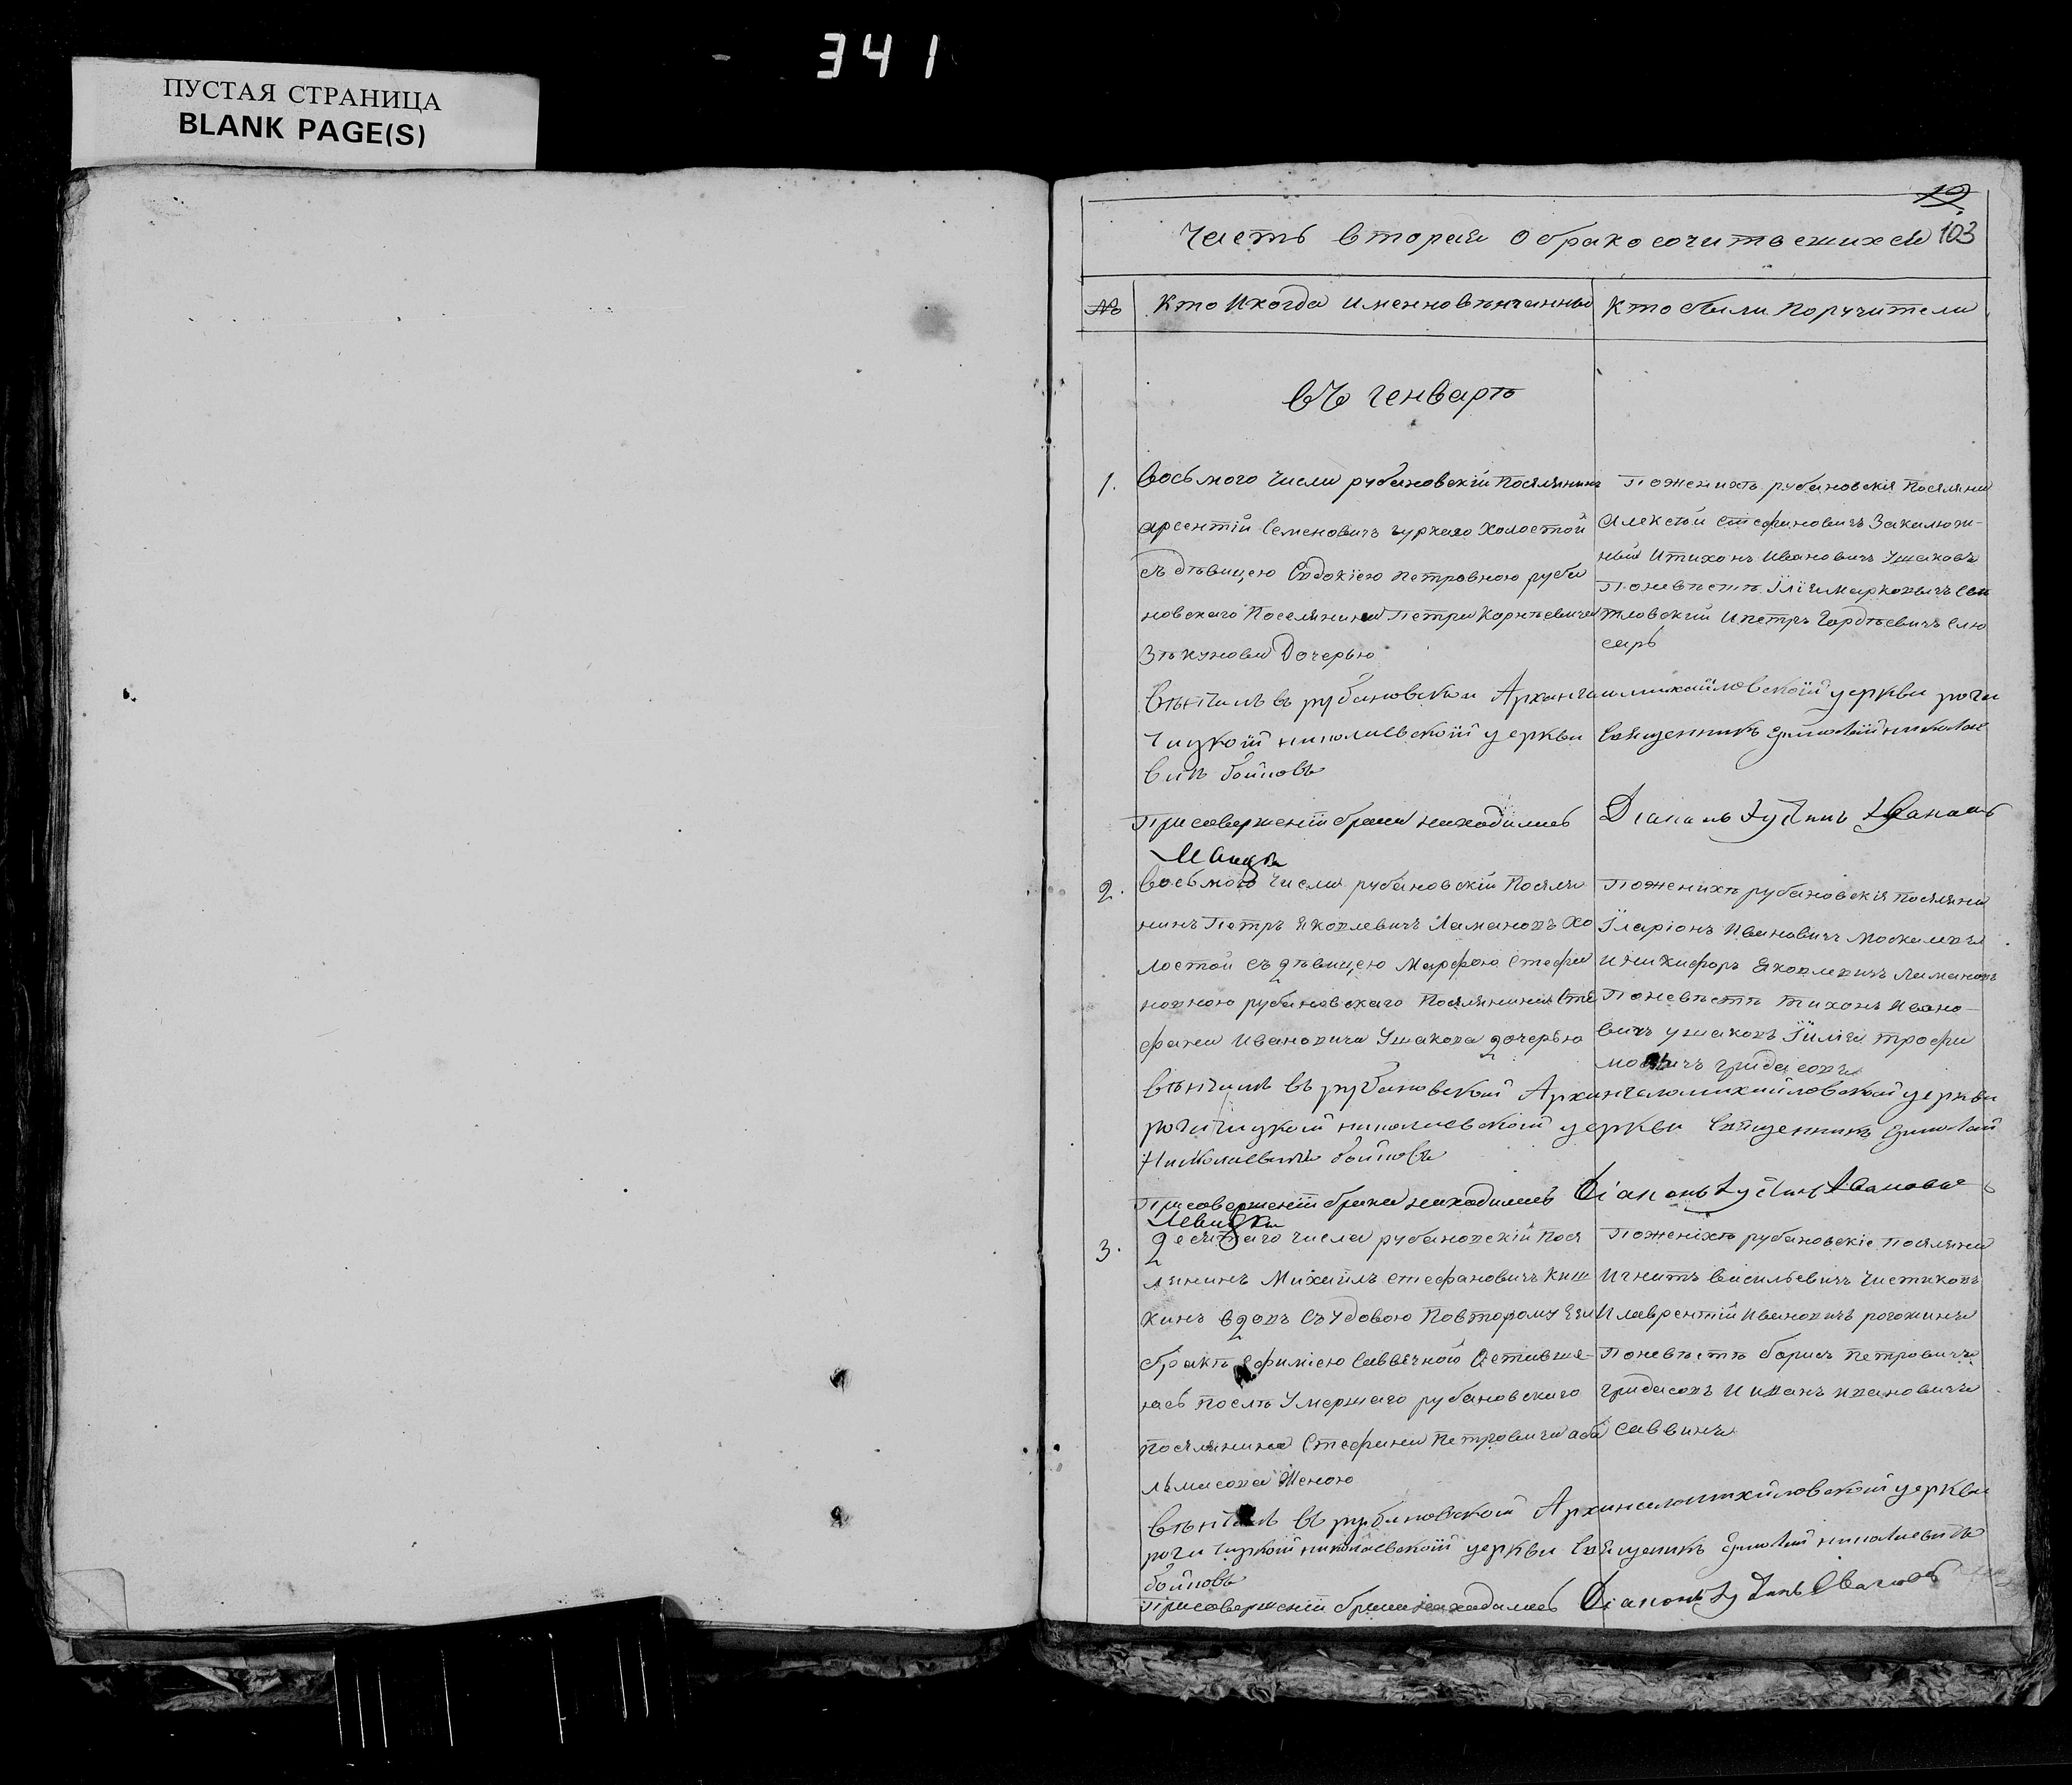 341
ПУСТАЯ СТРАНИЦА
BLANK PAGE(S)
19
103
Часть вторая о бракосочитавшихся
№
Кто и когда именно венчанны
Кто были поручители
въ генварѣ
1.
Восьмого числа рубановскій поселянинъ
арсентій Семеновичъ холостой
съ дѣвицею Евдокіею петровною руба
новскаго поселянина Петра Корнѣевича
дочерью
По женихѣ рубановскія поселяни
Алексѣй стефановичъ Закалюж-
ный и тихонъ Ивановичъ Ушаковъ
По невѣстѣ Їлія марковичъ свѣ
тловскій и петръ Гордѣевичъ слю
сарь
Вѣнчалъ въ рубановской Архангеломихайловскоїй церкви рога
чицкоїй николаевскоїй церкви Священникъ Ермолай николае
вичъ бойковъ
При совершеніи брака находились
Діаконъ Іустинъ Ивановъ
Левицкій
2.
Восьмого числа рубановскій поселя
нинъ Петръ Яковлевичъ Ламановъ хо
лостой съ дѣвицею Марфою Стефа
новною рубановскаго поселянина Сте
фана Ивановича Ушакова дочерью
По женихѣ рубановскія поселяни
Їларіонъ Ивановичъ
и никифоръ Яковлевичъ Ламановъ
По невѣстѣ тихонъ Ивано-
вичъ ушаковъ Їилія трофи
мовичъ гридасовъ
Вѣнчалъ въ рубановской Архангеломихайловской церкви
рогачицкой николаевскоїй церкви Священникъ Ермолай
Николаевичъ бойковъ
При совершеніи брака находились
Діаконъ Іустинъ Ивановъ
Левицкій
3.
Десятаго числа рубановскій посе
лянинъ Михаилъ стефановичъ Киш
кинъ вдовъ съ удовою по второму ея
бракѣ Ефиміею Саввичною оставше-
юсь послѣ умершаго рубановскаго
поселянина Стефана Петровича
женою
По женіхѣ рубановскіе поселяни
Игнатъ васильевичъ чистяковъ
И лаврентій Ивановичъ рогожинъ
По невѣстѣ борисъ петровичъ
гридасовъ и иванъ ивановичъ
саввинъ
Вѣнчалъ въ рубановской Архангеломихайловской церкви
рогачицкой николаевскоїй церкви Священикъ Ермолай николаевичъ
бойковъ
При совершеніи брака находились
Діаконъ Іустинъ Ивановъ